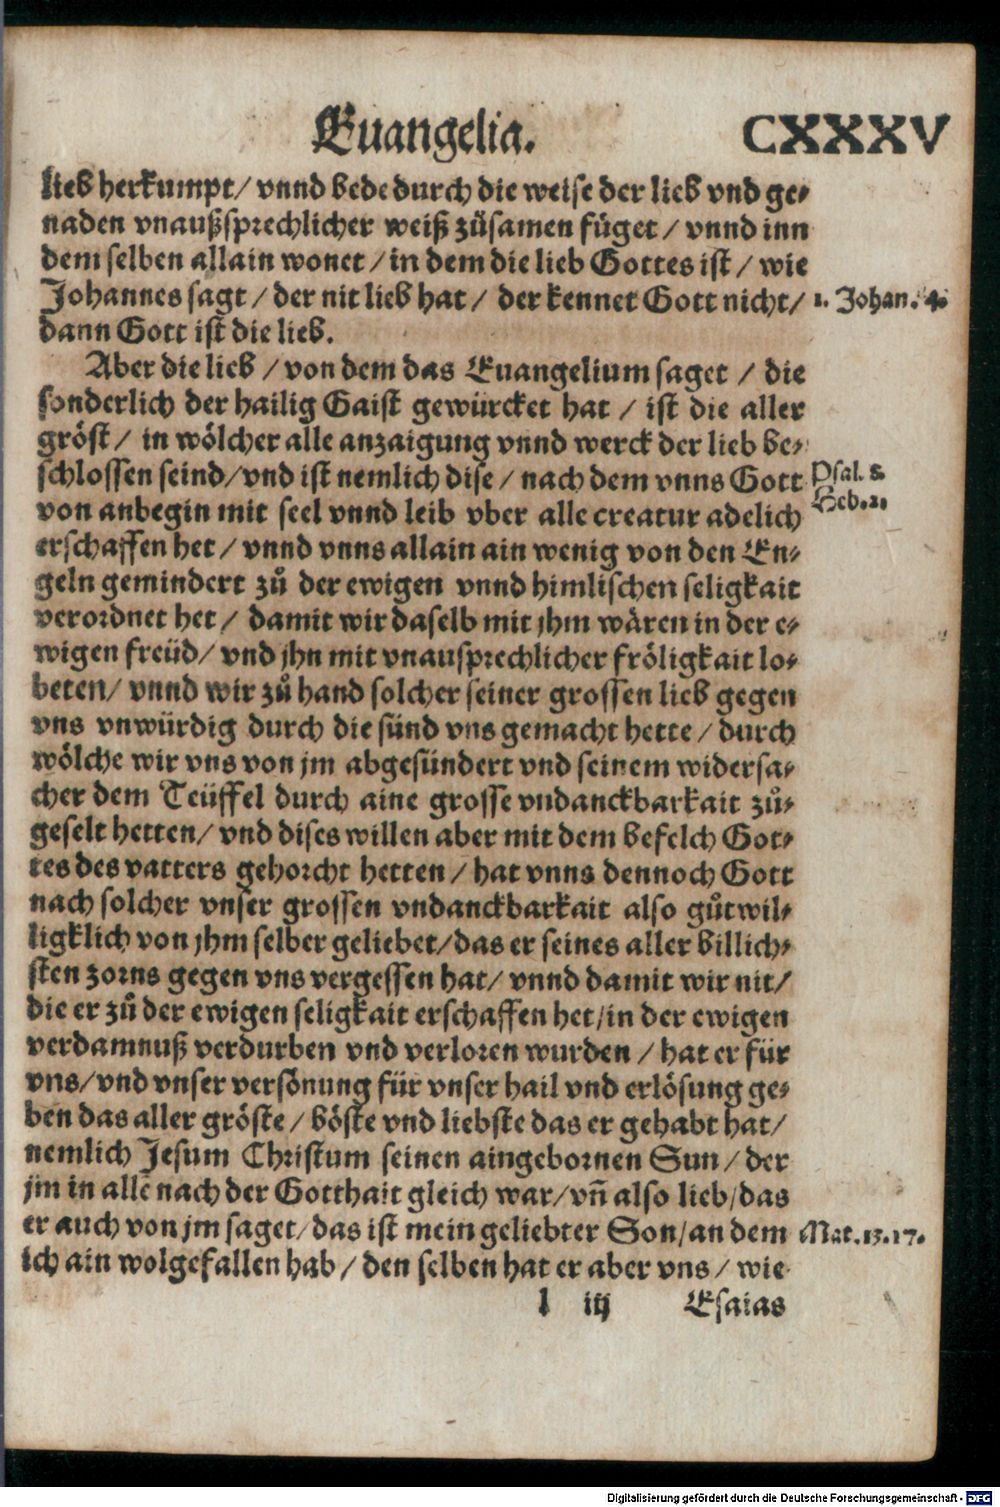 Euangelia. CXXXV
lieb herkumpt/ vnnd bede durch die weise der lieb vnd ge-
naden vnaußsprechlicher weiß zůsamen füget / vnnd inn
dem selben allain wonet / in dem die lieb Gottes ist / wie
Johannes sagt / der nit lieb hat / der kennet Gott nicht/ 1. Johan. 4.
dann Gott ist die lieb.
Aber die lieb / von dem das Euangelium saget / die
sonderlich der hailig Gaist gewürcket hat / ist die aller
gröst / in wölcher alle anzaigung vnnd werck der lieb be-
schlossen seind/vnd ist nemlich dise / nach dem vnns Gott Psal. 8.
von anbegin mit seel vnnd leib vber alle creatur adelich Heb. 2.
erschaffen het / vnnd vnns allain ain wenig von den En-
geln gemindert zů der ewigen vnnd himlischen seligkait
verordnet het / damit wir daselb mit jhm wären in der e-
wigen freüd/ vnd jhn mit vnausprechlicher fröligkait lo-
beten/ vnnd wir zů hand solcher seiner grossen lieb gegen
vns vnwürdig durch die sünd vns gemacht hette / durch
wölche wir vns von jm abgesündert vnd seinem widersa-
cher dem Teüffel durch aine grosse vndanckbarkait zů-
geselt hetten/ vnd dises willen aber mit dem befelch Got-
tes des vatters gehorcht hetten / hat vnns dennoch Gott
nach solcher vnser grossen vndanckbarkait also gůtwil-
ligklich von jhm selber geliebet/das er seines aller billich-
sten zorns gegen vns vergessen hat/ vnnd damit wir nit/
die er zů der ewigen seligkait erschaffen het/in der ewigen
verdamnuß verdurben vnd verloren wurden / hat er für
vns/vnd vnser versönung für vnser hail vnd erlösung ge-
ben das aller gröste / böste vnd liebste das er gehabt hat/
nemlich Jesum Christum seinen aingebornen Sun / der
jm in allē nach der Gotthait gleich war/vñ also lieb/das
er auch von jm saget/das ist mein geliebter Son/an dem Mat. 13. 17.
ich ain wolgefallen hab / den selben hat er aber vns / wie
l iij Esaias
Digitalisierung gefördert durch die Deutsche Forschungsgemeinschaft - DFG